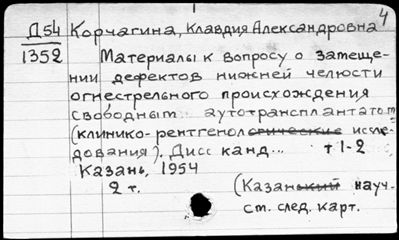 4
Д54 Корчагина, Клавдия Александровна
1352 Материалы к вопросу о замеще-
нии дефектов нижней челюсти
огнестрельного происхождения
свободным аутотрансплантатом
(клинико-рентгенологические иссле-
дования). Дисс канд... т 1-2
Казань, 1954
2 т. (Казанский науч.
ст. след. карт.